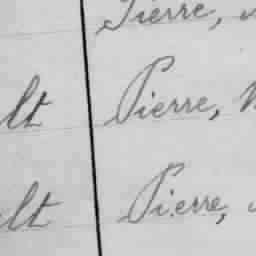 Pierre,
lt Pierre,
lt Pierre,